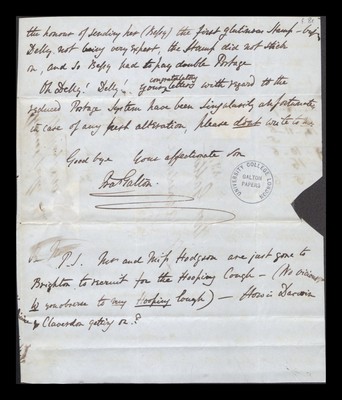 the honour of sending her (Bessy) the first glutinous Stamp - but
Delly not being very expert, the Stamp did not stick
on, and so Bessy had to pay double Postage
Oh Delly! Delly! congratulatory
your letters with regard to the
reduced Postage System have been singularly unfortunate,
in case of any fresh alteration, please dont write to us
Good bye Your affectionate Son
Fras Galton
UNIVERSITY COLLEGE LONDON
GALTON
PAPERS
P.S. Mr and Miss Hodgson are just gone to
Brighton to recruit for the Hooping Cough - (No
to my Hooping Cough) - How is Darwin
& Claverdon getting on?